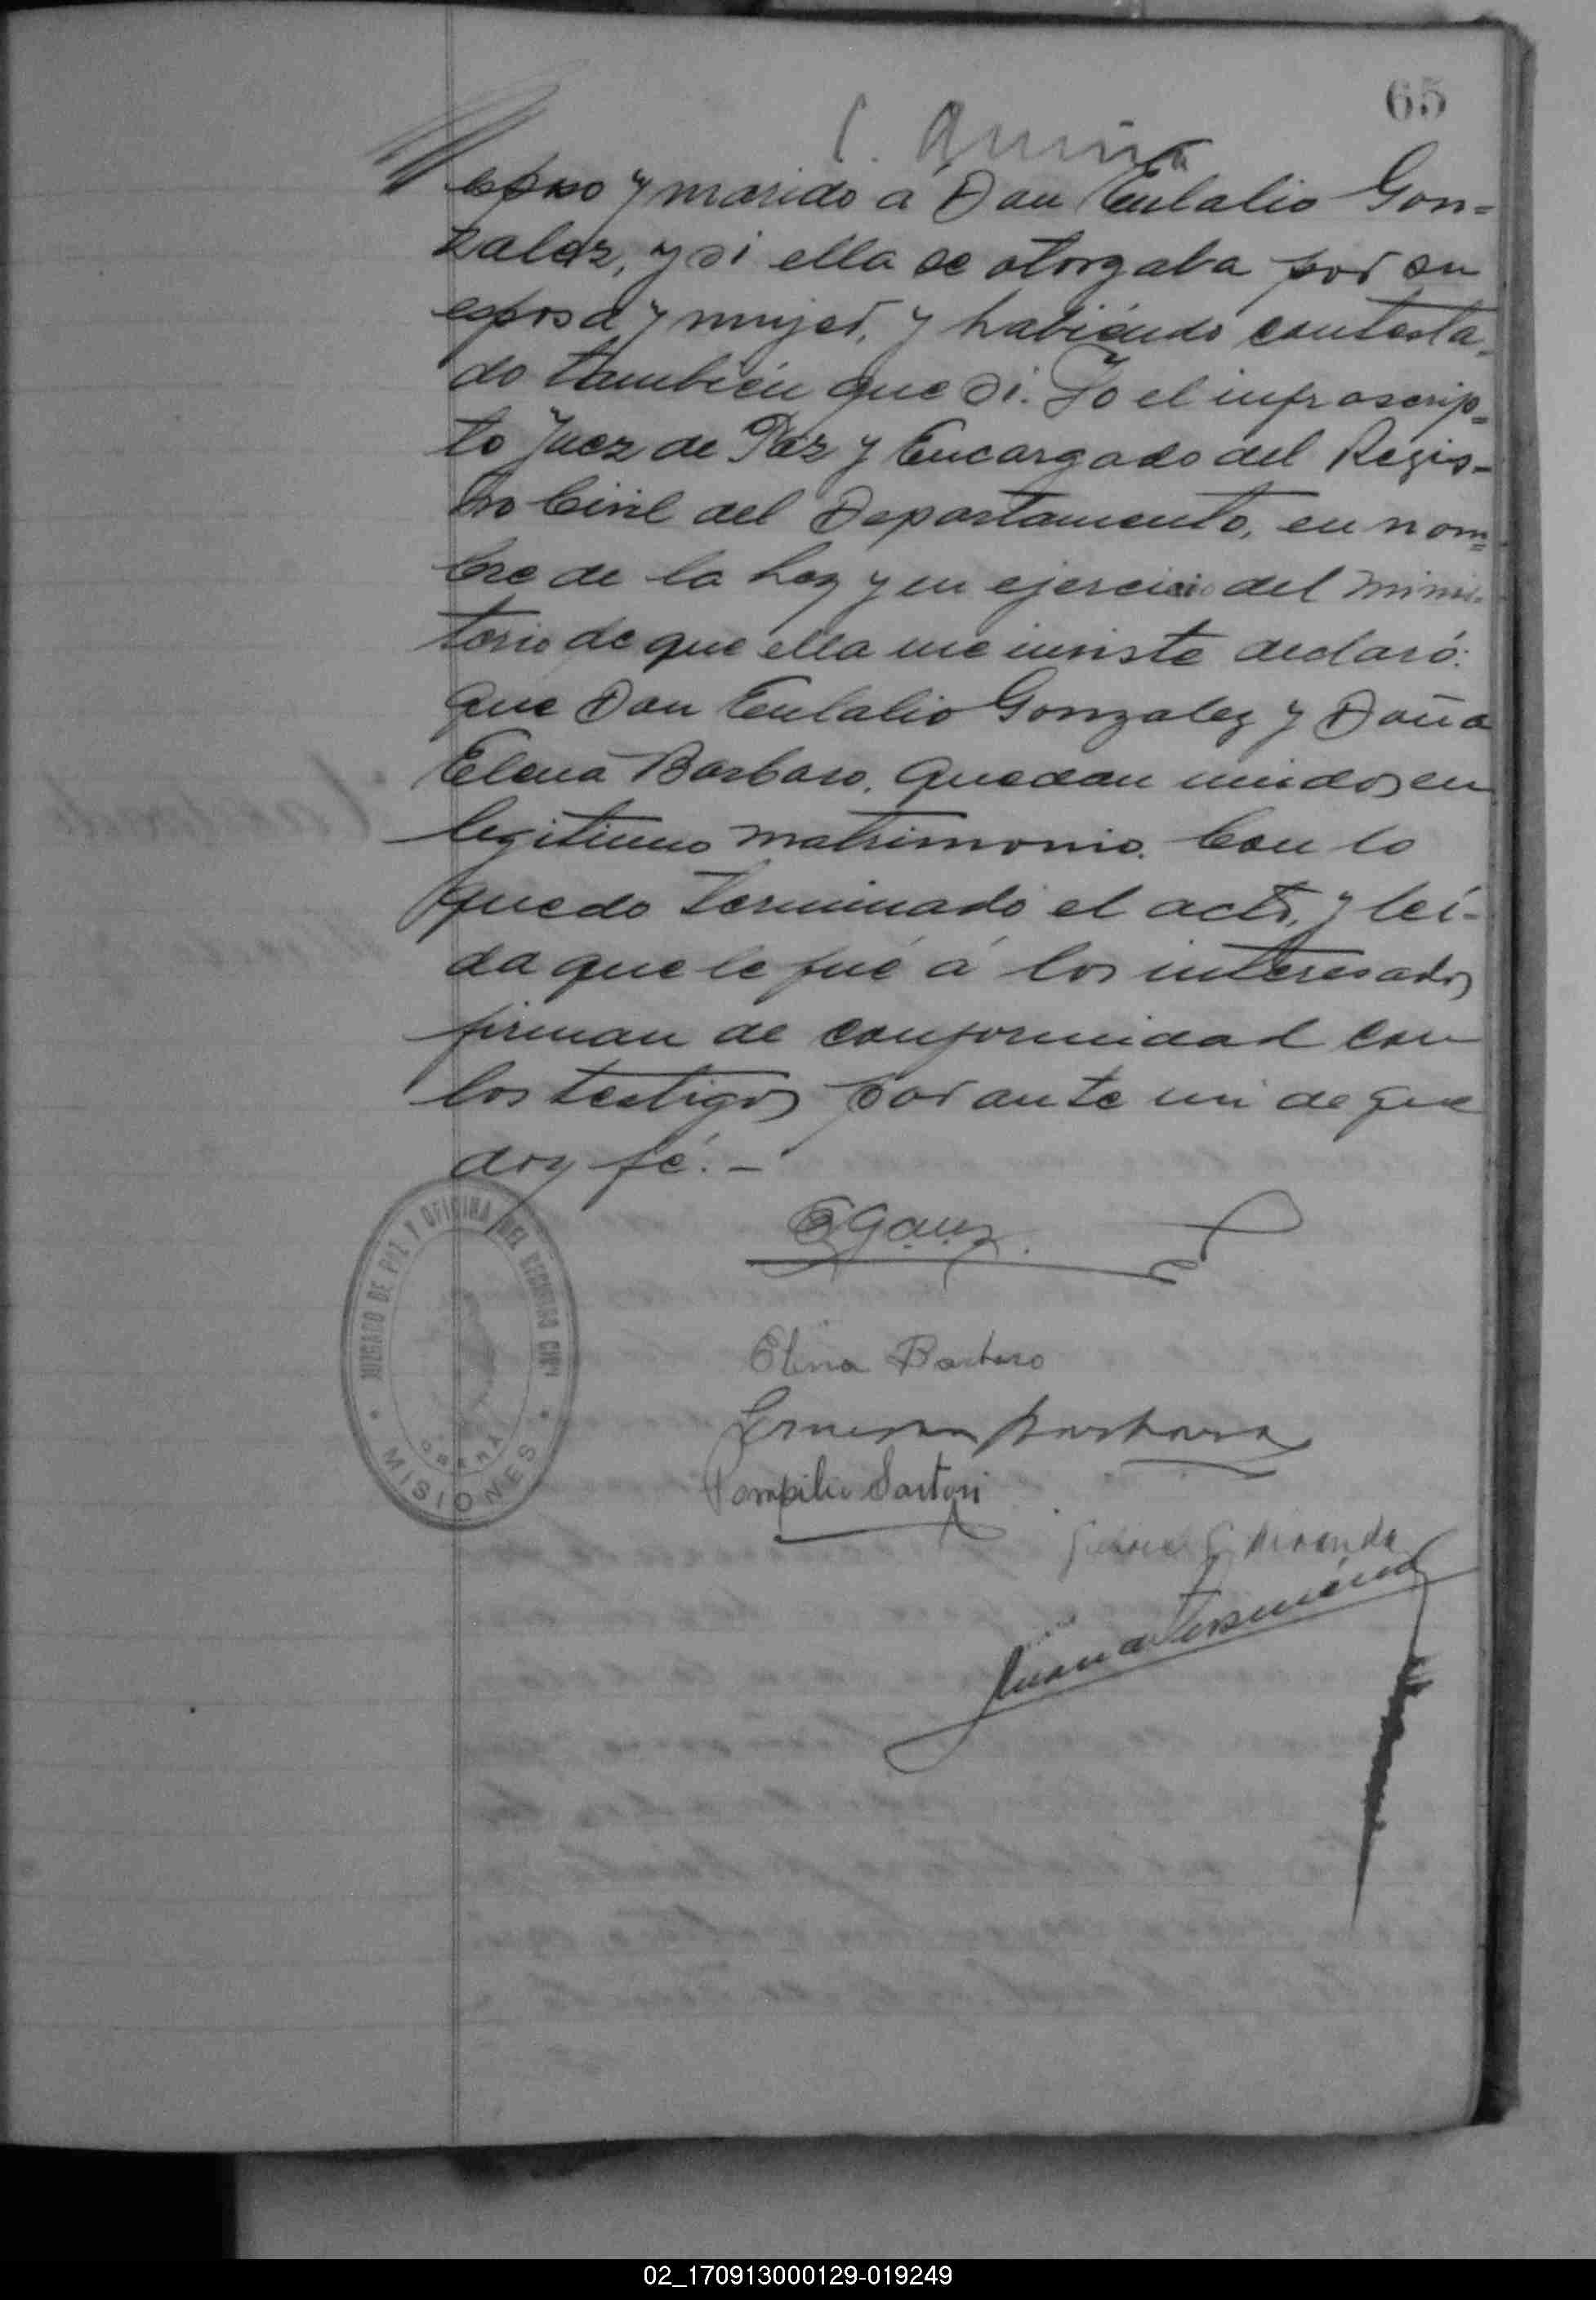 65
esposo y marido á Don Eulalio Gon=
zalez, y si ella se otorgaba por su
esposa y mujer, y habiéndo contesta=
do también que si. Yo el infrascrip=
to Juez de Paz y Encargado del Regis-
tro Civil del Departamento, en nom=
bre de la Ley y en ejercicio del minis-
terio de que ella me inviste declaró:
que Don Eulalio Gonzalez y Doña
Elena Barbaro, quedan unidos en
legitimo matrimonio. Con lo
quedo terminado el acto, y leí-
da que le fué á los interesados
firman de conformidad con
los testigos por ante mi de que
doy fé. –
JUZGADO DE PAZ Y OFICINA DEL REGISTRO CIVIL
OBERÁ
MISIONES
Elena Barbaro
Barbaro
Pompilio Sartori
Miranda
Juan
02_170913000129-019249